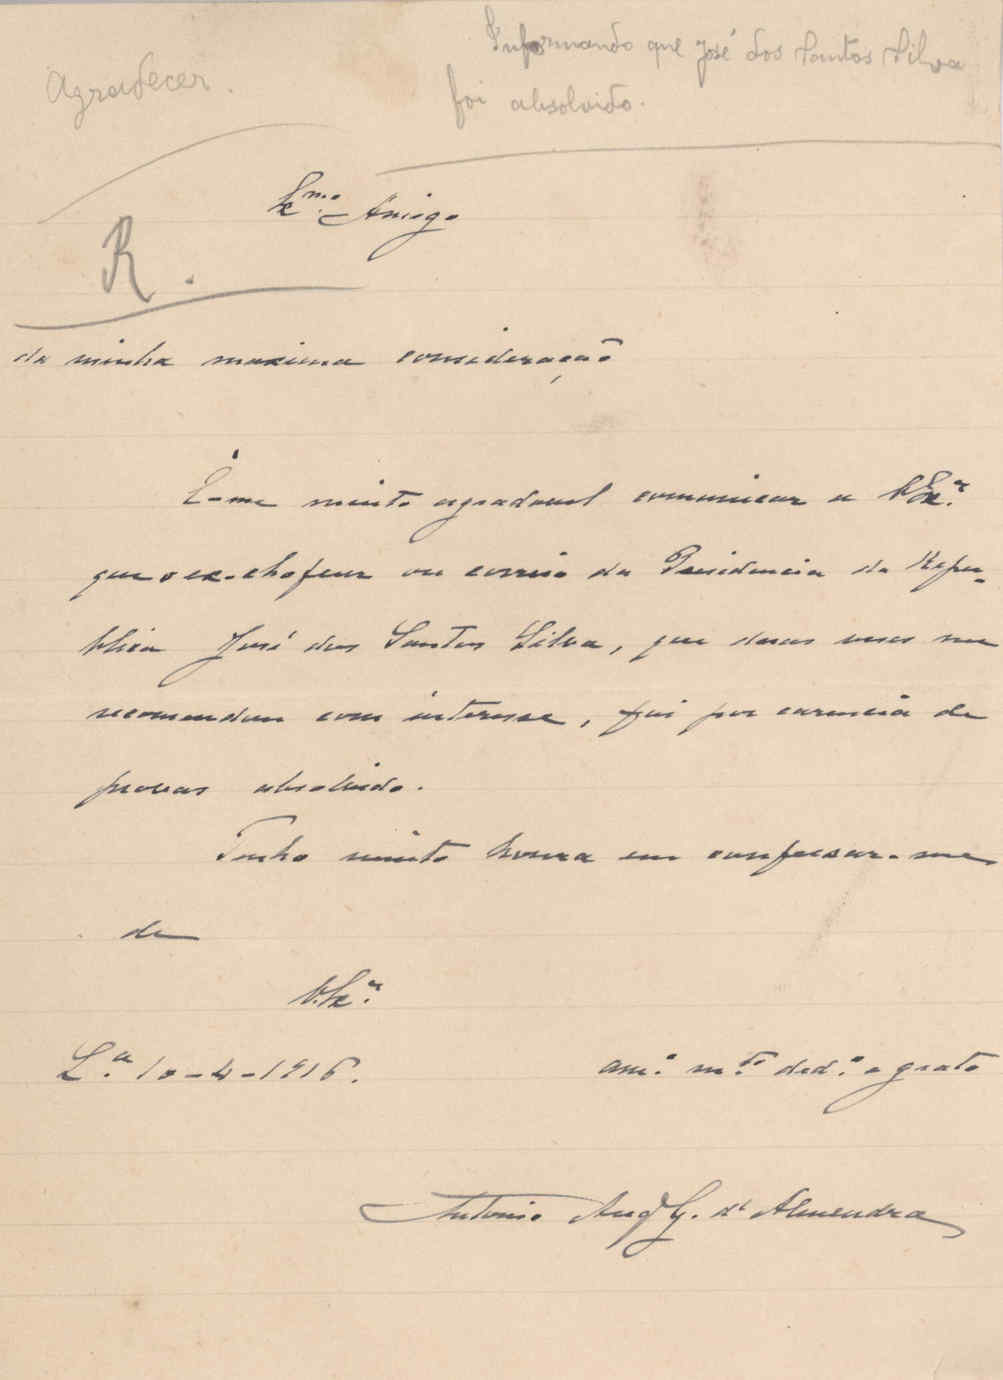 Informando que José dos Santos Silva
foi absolvido.
Agradecer.
Ex.mo Amigo
R.
da minha maxima consideração
É-me muito agradavel comunicar a V. Ex.ª
que o ex-chofeur ou correio da Presidencia da Repu-
blica José dos Santos Silva, que duas vezes me
recomendou com interesse, foi por carencia de
provas absolvido.
Tenho muita honra em confessar-me
de
V. Ex.ª
L.ª 10-4-1916.
am.º m.to ded.º e grato
Antonio Aug.º G. d'Almendra